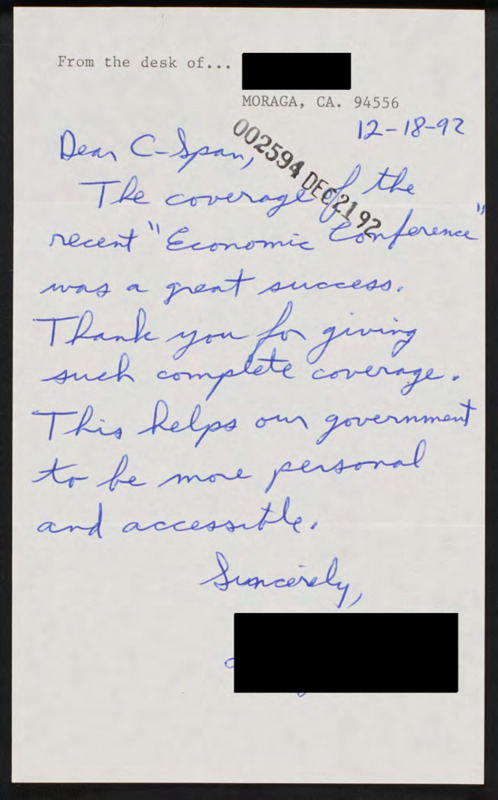 From the desk of...
MORAGA, CA. 94556
12-18-92
002594 DEC 21 92
Dear C-Span,
The coverage of the
recent "Economic Conference"
was a great success.
Thank you for giving
such complete coverage.
This helps our government
to be more personal
and accessible.
Sincerely,